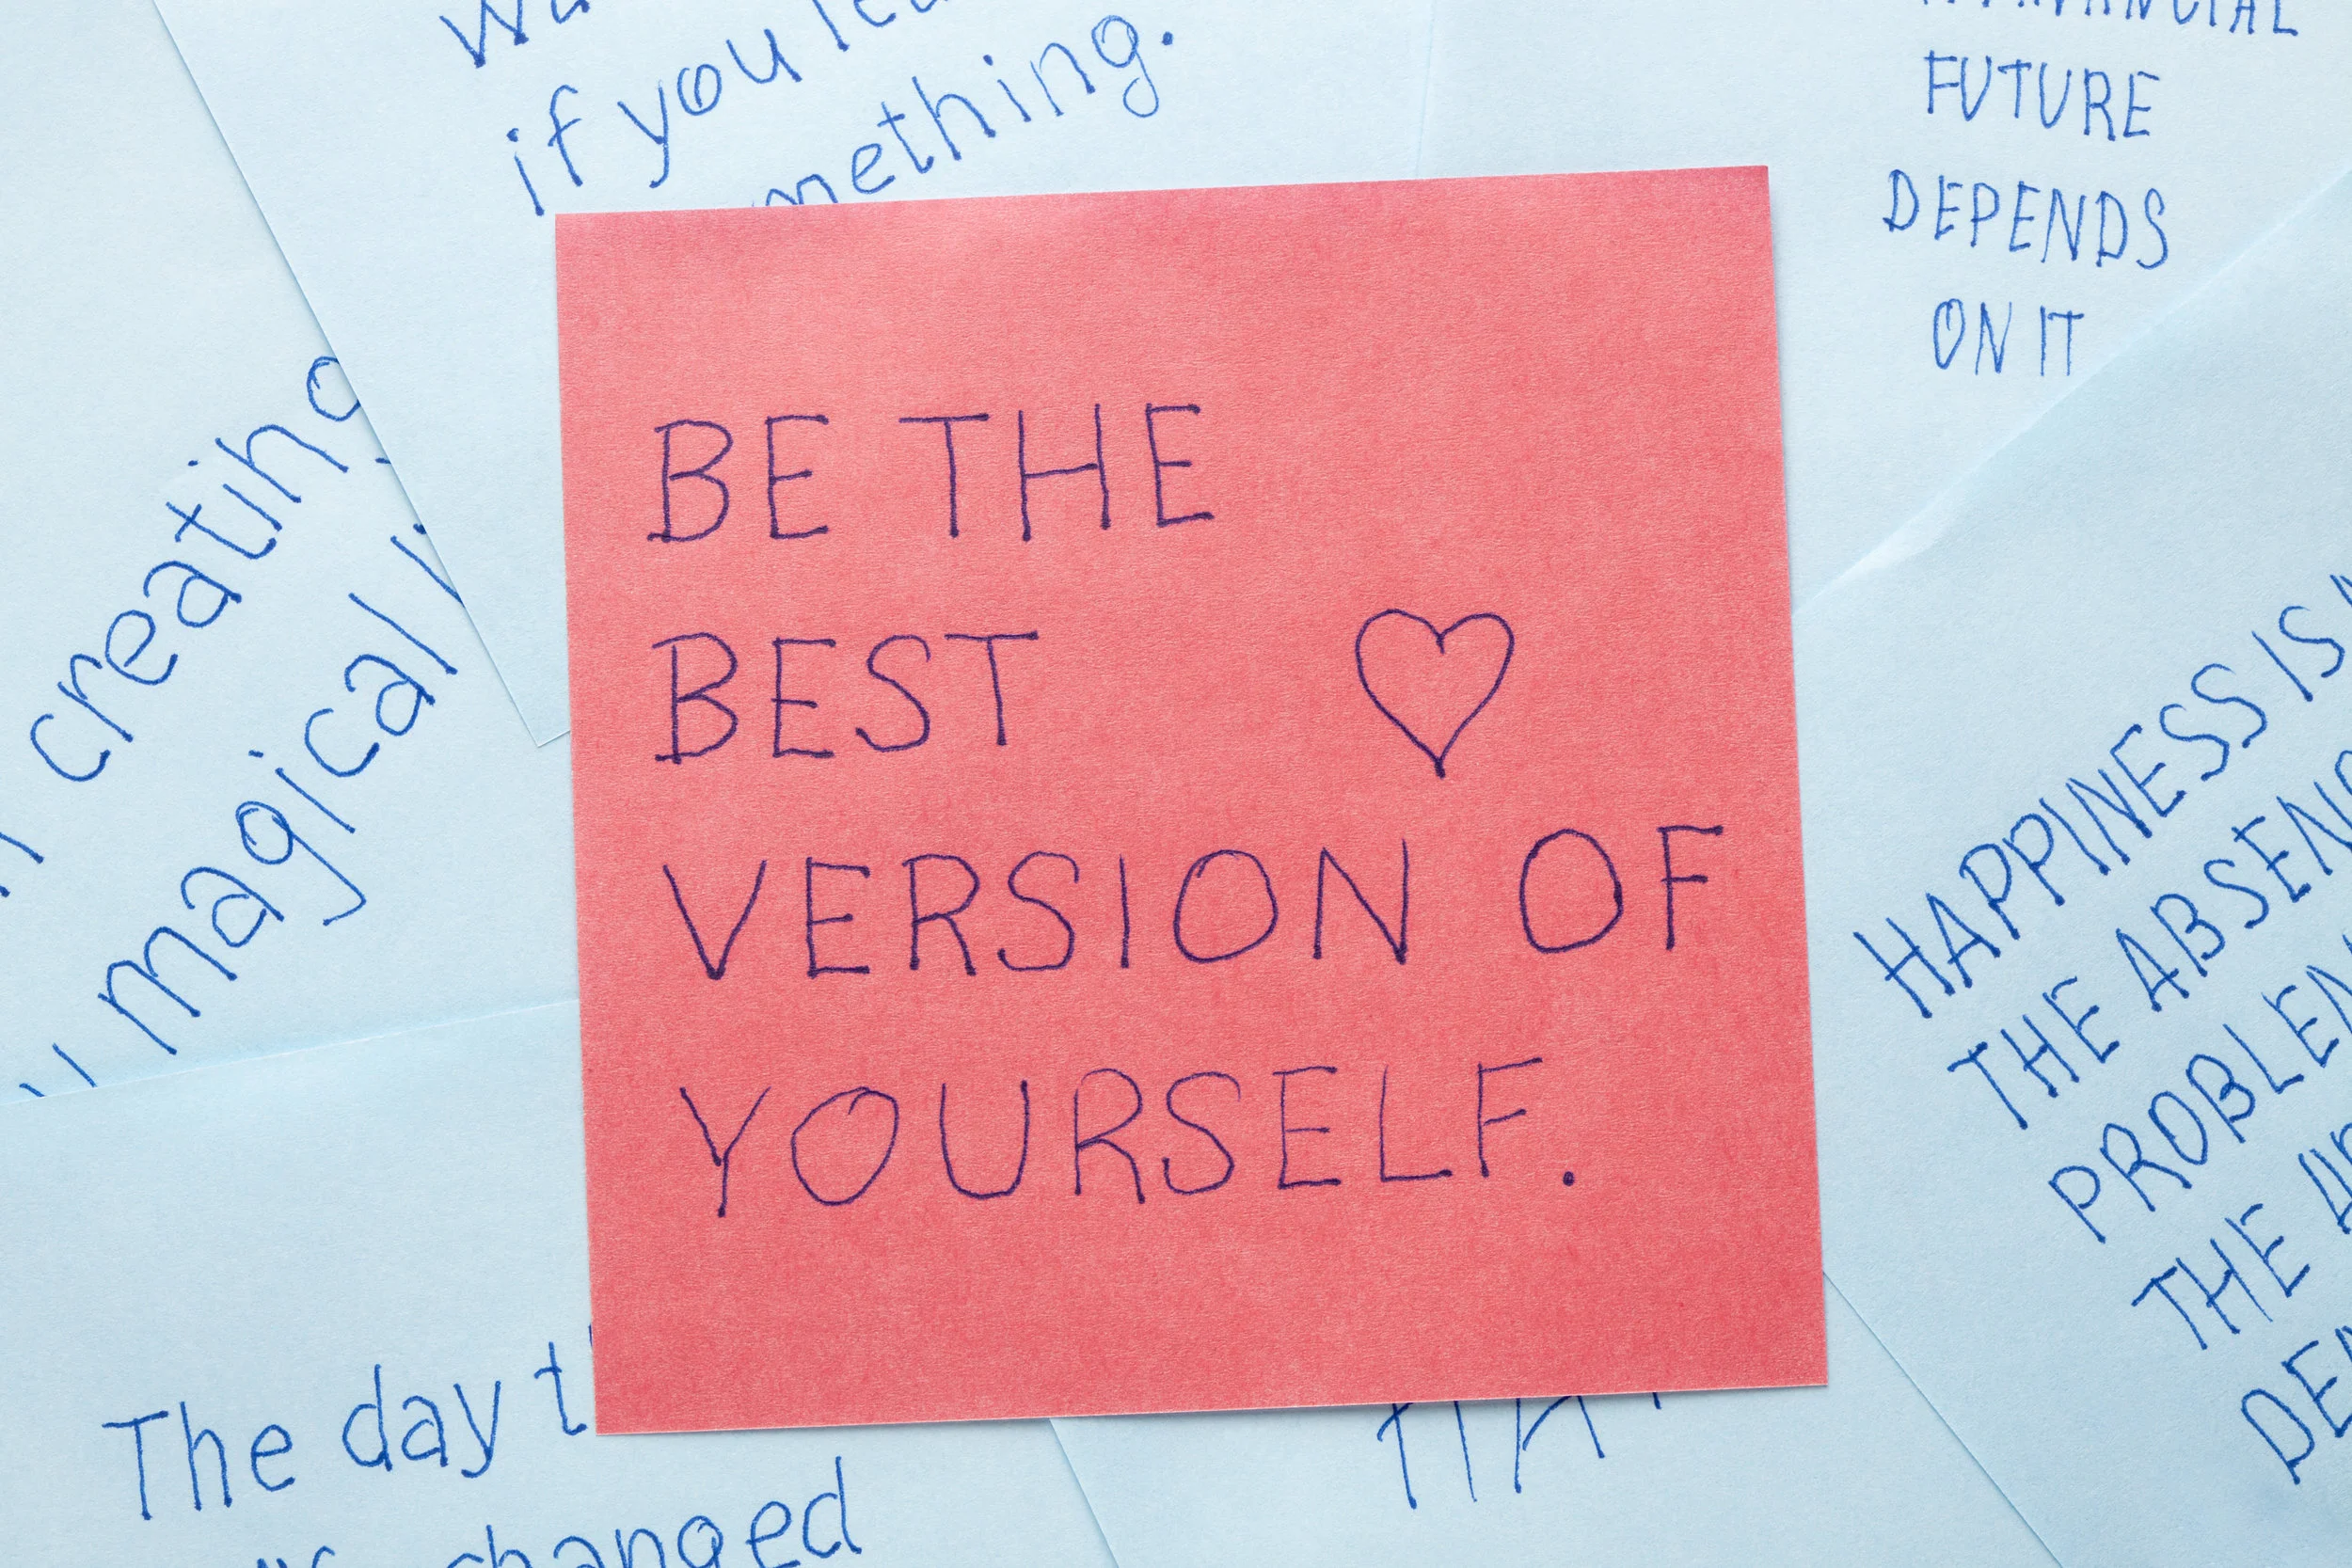 if you
something.
FUTURE
DEPENDS
ON IT
creating
magical
BE THE
BEST
VERSION OF
YOURSELF.
HAPPINESS IS
THE
THE
The day
changed